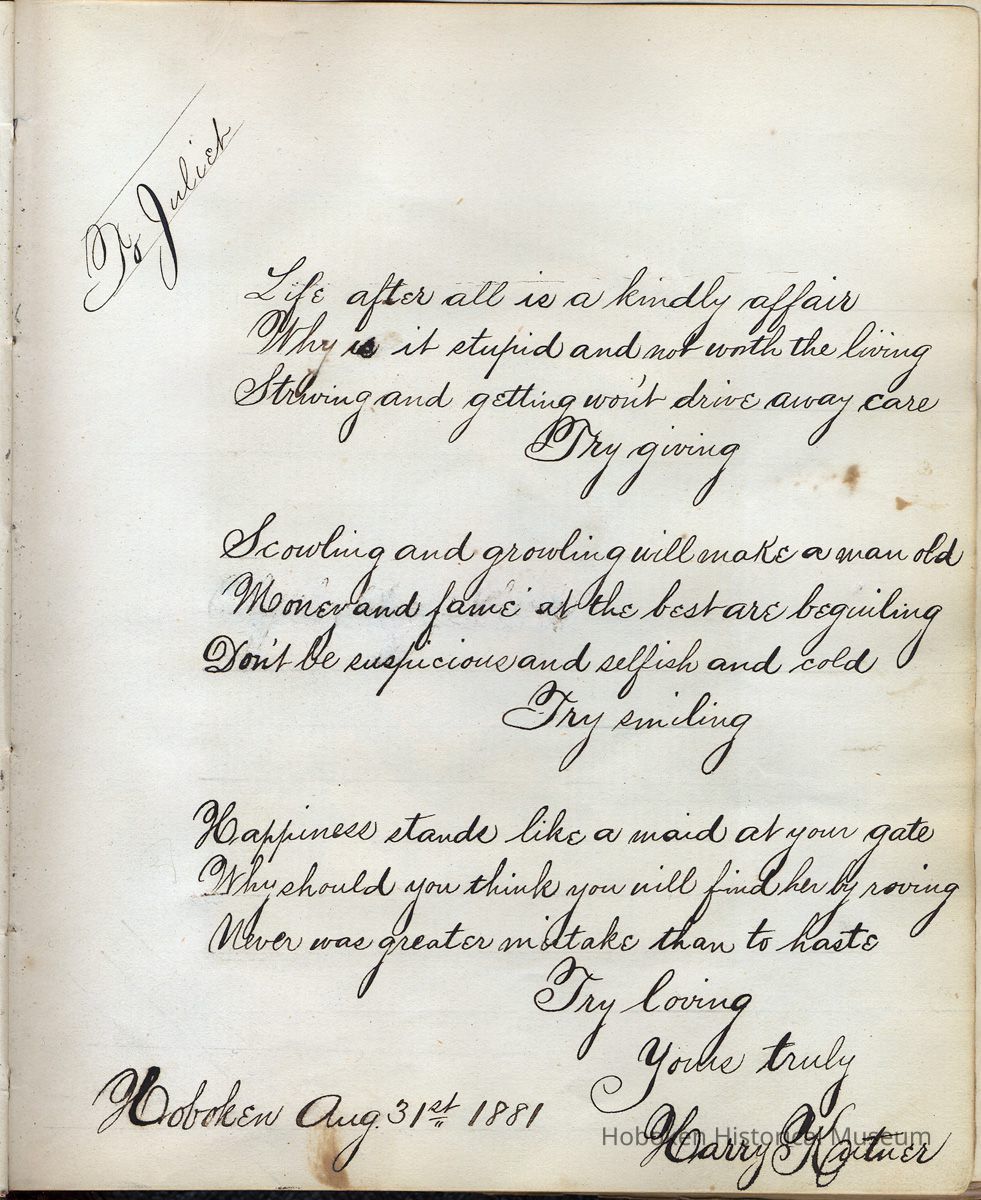 To Juliet
Life after all is a kindly affair
Why is it stupid and not worth the living
Striving and getting won't drive away care
Try giving
Scowling and growling will make a man old
Money and fame at the best are beguiling
Don't be suspicious and selfish and cold
Try smiling
Happiness stands like a maid at your gate
Why should you think you will find her by roving
Never was greater mistake than to haste
Try loving
Yours truly
Hoboken Aug. 31st 1881
Hoboken Historical Museum
Harry